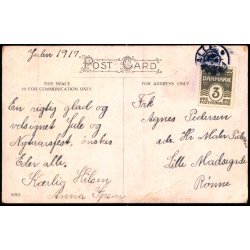 Julen 1917.
POST CARD
THIS SPACE
IS FOR COMMUNICATION ONLY.
FOR ADDRESS ONLY
DANMARK
3
En rigtig glad og
velsignet Jule og
Nytaarsfest, ønskes
Eder alle.
Kærlig Hilsen
Anna
Frk
Agnes Pedersen
Hr Maler
Lille Madsegade
Rønne